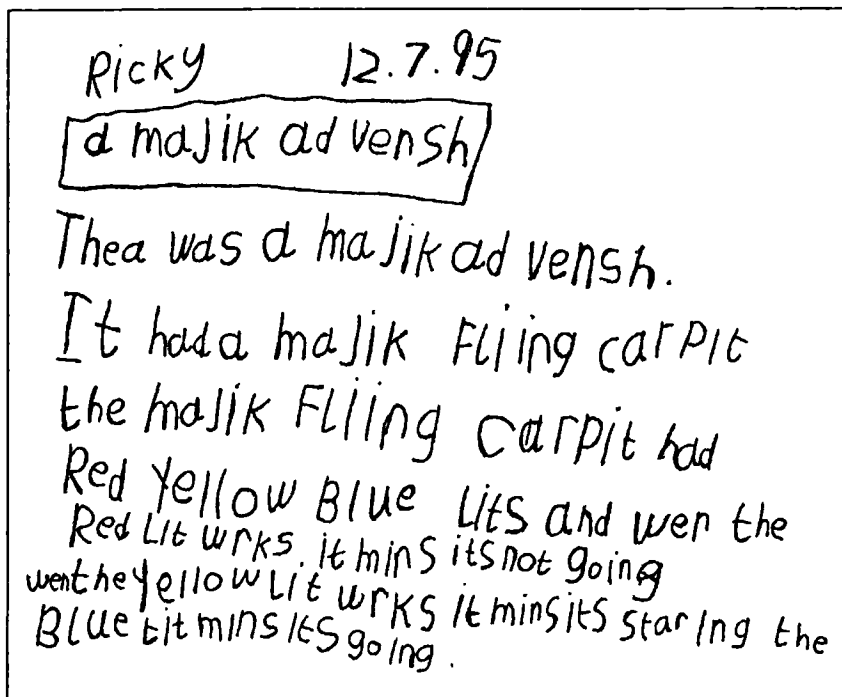 Ricky 12.7.95
a majik ad vensh
Thea was a majik ad vensh.
It had a majik Fliing carpit
the majik Fliing carpit had
Red Yellow Blue Lits and wen the
Red Lit wrks. it mins its not going
wen the yellow Lit wrks it mins its staring the
Blue tit mins its going.